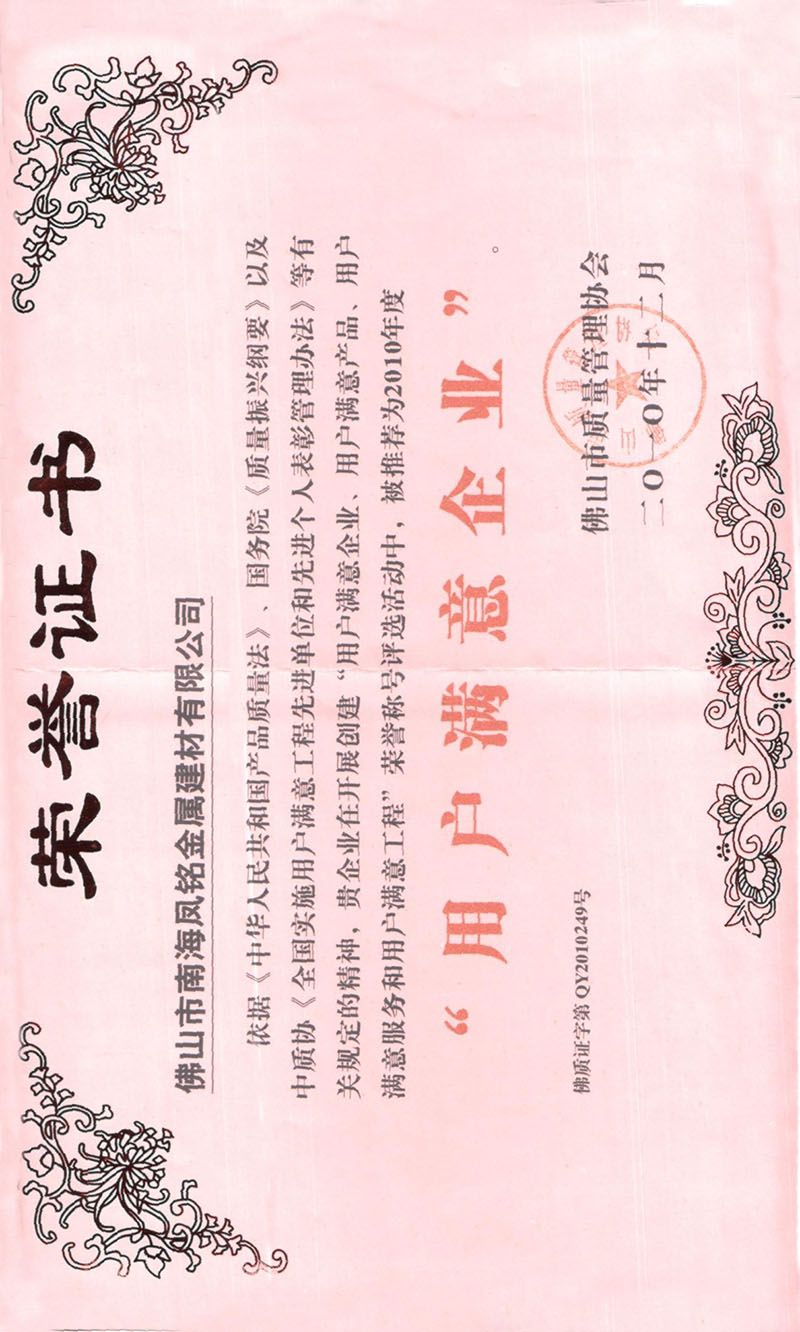 荣誉证书
佛山市南海凤铭金属建材有限公司
依据《中华人民共和国产品质量法》、国务院《质量振兴纲要》以及
中质协《全国实施用户满意工程先进单位和先进个人表彰管理办法》等有
关规定的精神，贵企业在开展创建“用户满意企业、用户满意产品、用户
满意服务和用户满意工程”荣誉称号评选活动中，被推荐为2010年度
“用户满意企业”。
佛质证字第 QY2010249号
佛山市质量管理协会
二〇一〇年十二月